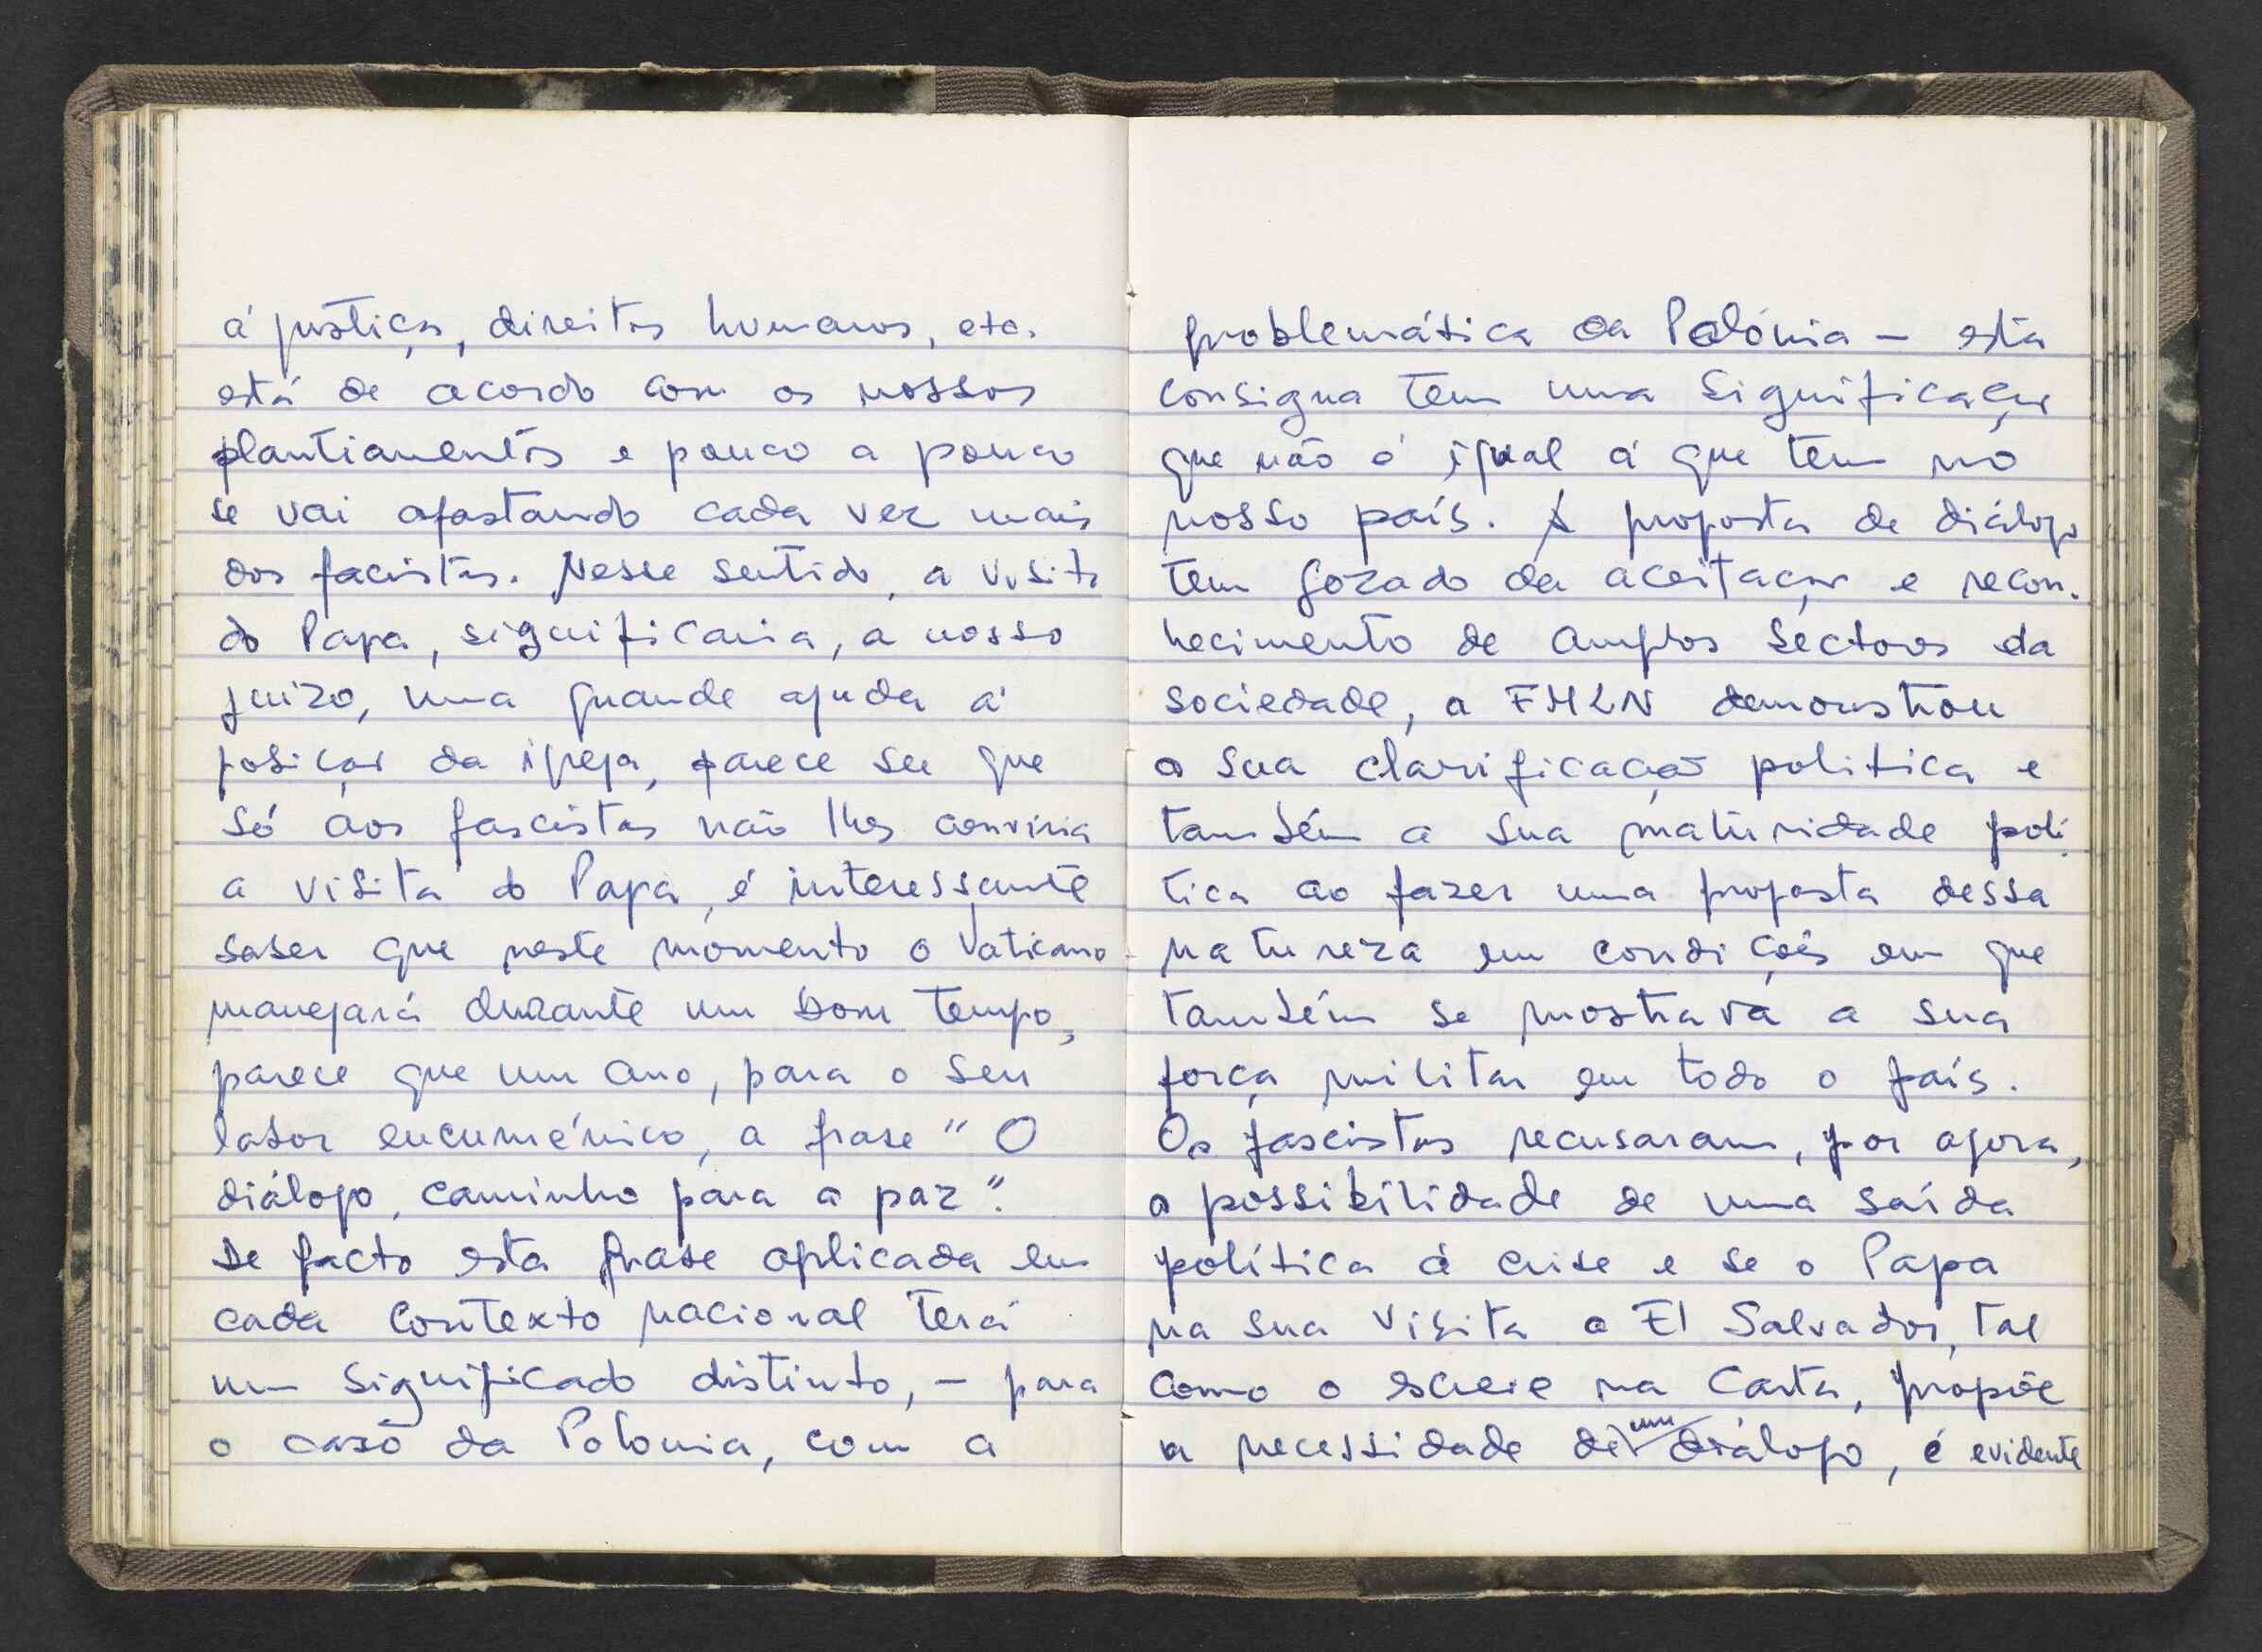 á justiça, direitos humanos, etc.
está de acordo com os nossos
plantiamentos e pouco a pouco
se vai afastando cada vez mais
dos facistas. Nesse sentido, a visita
do Papa, significaria, a nosso
juizo, uma grande ajuda á
posição da igreja, parece ser que
só aos fascistas não lhes conviria
a visita do Papa, é interessante
saber que neste momento o Vaticano
manejará durante um bom tempo,
parece que um ano, para o seu
labor encuménico, a frase " O
diálogo, caminho para a paz".
De facto esta frase aplicada em
cada contexto nacional terá
um significado distinto, - para
o caso da Polonia, com a
problemática da Polónia - esta
consigna tem uma significação
que não é igual á que tem no
nosso país. A proposta de diálogo
tem gozado da aceitação e recon-
hecimento de amplos sectores da
sociedade, a FMLN demonstrou
a sua clarificação politica e
também a sua maturidade poli
tica ao fazer uma proposta dessa
natureza em condições em que
também se mostrava a sua
força militar em todo o país.
Os fascistas recusaram, por agora,
a possibilidade de uma saída
política á crise e se o Papa
na sua visita a El Salvador, tal
como o escreve na Carta, propõe
a necessidade de um diálogo, é evidente